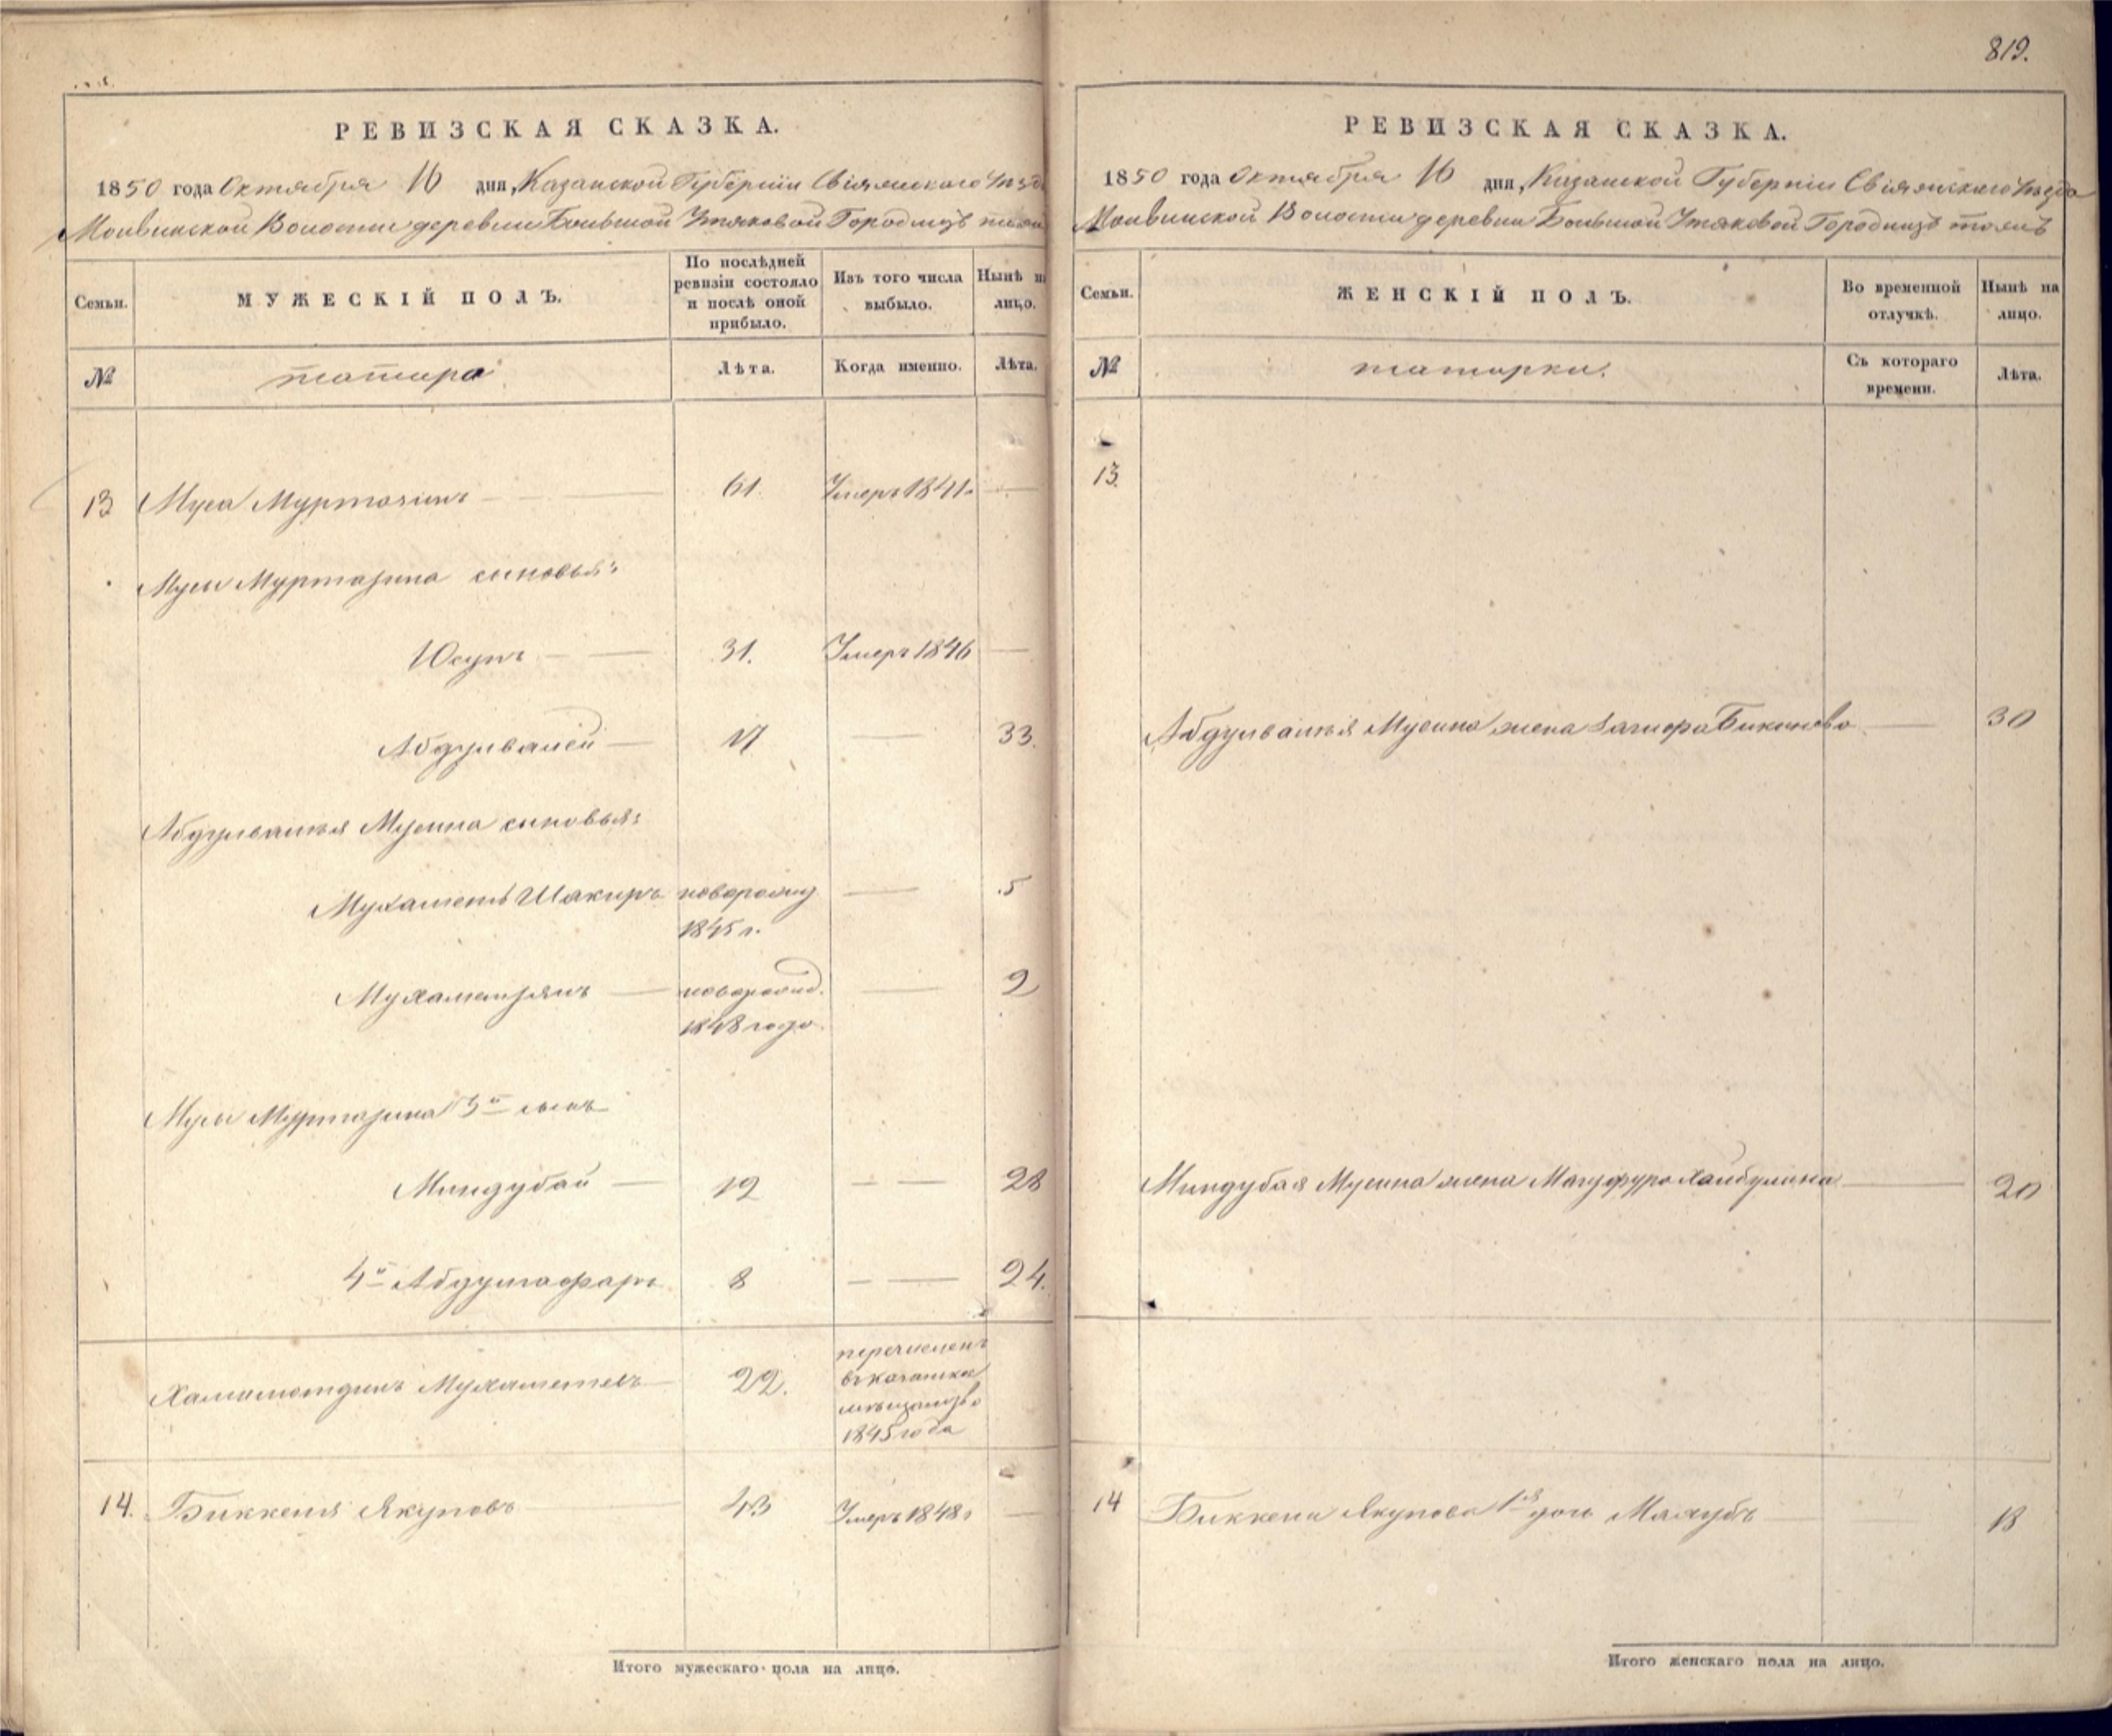 819.
РЕВИЗСКАЯ СКАЗКА.
1850 года Октября 16 дня, Казанской Губерніи Свіяжскаго Уѣзд
Волости деревни Большой Утяковой
Семьи.
МУЖЕСКІЙ ПОЛЪ.
По послѣдней ревизіи состояло и послѣ оной прибыло.
Изъ того числа выбыло.
Нынѣ на лицо.
№
татара
Лѣта.
Когда именно.
Лѣта.
13 Муса Муртозинъ 61. Умеръ 1841г.
Мусы Муртазина сыновья:
Юсупъ 31. Умеръ 1846
Абдулвалей 17 33.
Абдулвалѣя Мусина сыновья:
Мухаметъ Шакиръ новорожд 5
1845 г.
Мухаметзянъ новорожд. 2
1848 года.
Мусы Муртазина 3й сынъ
Миндубай 19 28
4й Абдулгафаръ 8 24.
перечисленъ
22. въ казанско
1845 года
14. Биккеня Якуповъ 43 Умеръ 1848г
Итого мужескаго пола на лицо.
РЕВИЗСКАЯ СКАЗКА.
1850 года Октября 16 дня, Казанской Губерніи Свіяжскаго Уѣзда
Волости деревни Большой Утяковой
Семьи.
ЖЕНСКІЙ ПОЛЪ.
Во временной отлучкѣ.
Нынѣ на лицо.
№
татарки.
Съ котораго времени.
Лѣта.
13.
Абдулвалѣя Мусина жена Бикинева 30
Миндубая Мусина жена Хайбулина 20
14 Биккени Якупова 1я дочь 13
Итого женскаго пола на лицо.